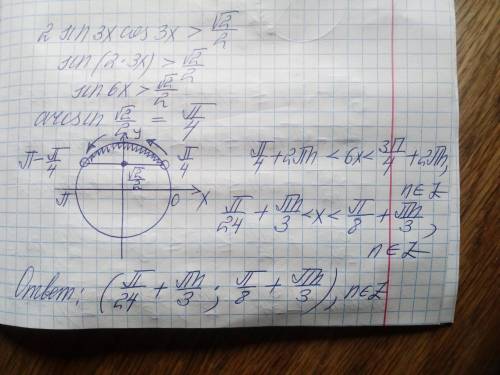 2 sin 3x cos 3x > √2/2
sin (2·3x) > √2/2
sin 6x > √2/2
arcsin √2/2 = π/4
y
π - π/4
π/4
√2/2
π
0
x
π/4 + 2πn < 6x < 3π/4 + 2πn,
n ∈ Z
π/24 + πn/3 < x < π/8 + πn/3,
n ∈ Z
Ответ: (π/24 + πn/3 ; π/8 + πn/3), n ∈ Z